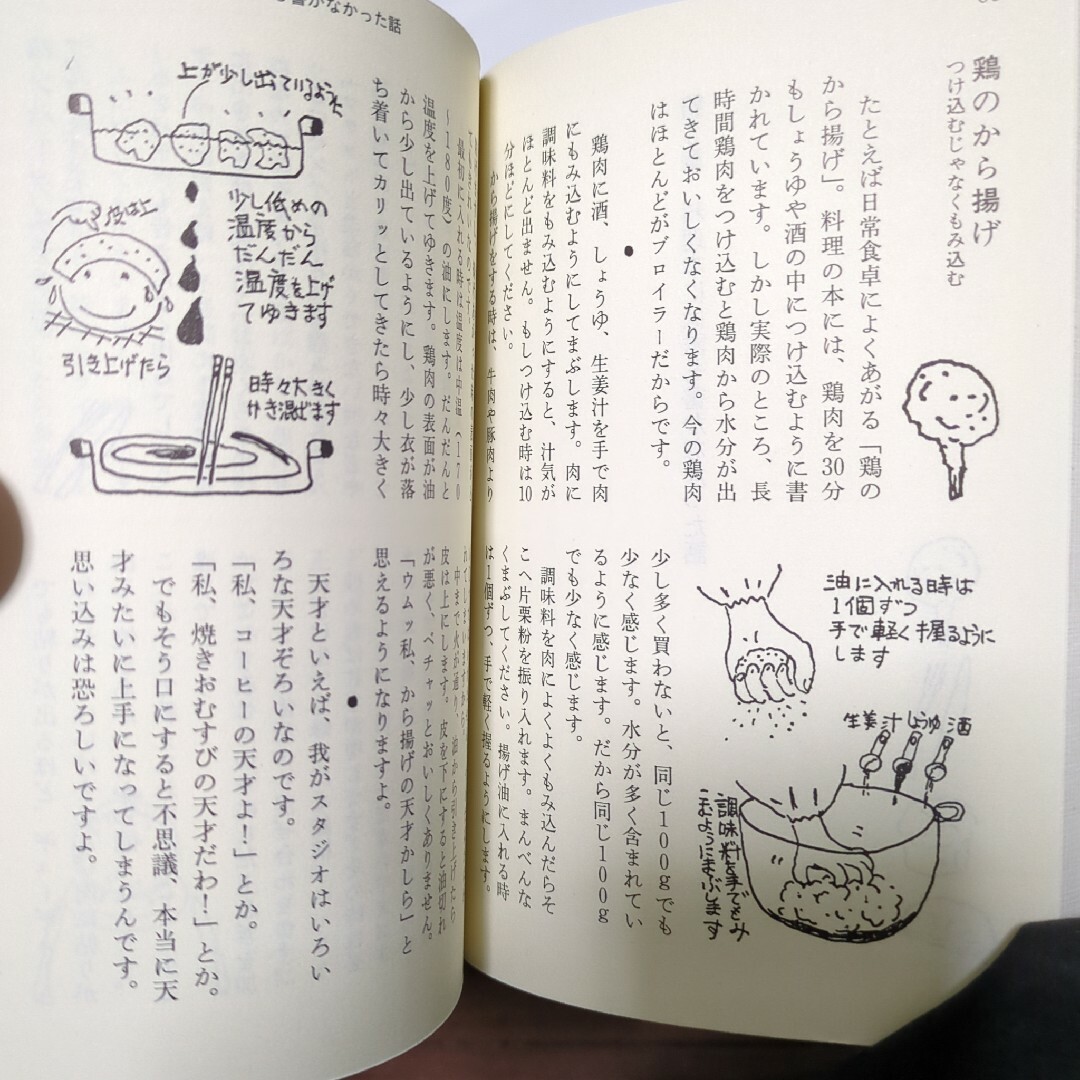 鶏のから揚げ
つけ込むじゃなくもみ込む
たとえば日常食卓によくあがる「鶏の
から揚げ」。料理の本には、鶏肉を30分
もしょうゆや酒の中につけ込むように書
かれています。しかし実際のところ、長
時間鶏肉をつけ込むと鶏肉から水分が出
てきておいしくなくなります。今の鶏肉
はほとんどがブロイラーだからです。
●
鶏肉に酒、しょうゆ、生姜汁を手で肉
にもみ込むようにしてまぶします。肉に
調味料をもみ込むようにすると、汁気が
ほとんど出ません。もしつけ込む時は10
分ほどにしてください。
から揚げをする時は、牛肉や豚肉より
油に入れる時は
1個ずつ
手で軽く握るように
します
生姜汁
しょうゆ
酒
調味料を手でもみ
こむようにまぶします
少し多く買わないと、同じ100gでも
少なく感じます。水分が多く含まれてい
るように感じます。だから同じ100g
でも少なく感じます。
調味料を肉によくよくもみ込んだらそ
こへ片栗粉を振り入れます。まんべんな
くまぶしてください。揚げ油に入れる時
は1個ずつ、手で軽く握るようにします。
書かなかった話
最初に入れる時は温度は中温(170
~180度)の油にします。だんだんと
温度を上げてゆきます。鶏肉の表面が油
から少し出ているようにし、少し衣が落
ち着いてカリッとしてきたら時々大きく
上が少し出ているように
少し低めの
温度から
だんだん
温度を上げ
てゆきます
皮は上
引き上げたら
時々大きく
かき混ぜます
中まで火が通り、油から引き上げたら
皮は上にします。皮を下にすると油切れ
が悪く、ベチャッとおいしくありません。
「ウムッ私、から揚げの天才かしら」と
思えるようになりますよ。
●
天才といえば、我がスタジオはいろい
ろな天才ぞろいなのです。
「私、コーヒーの天才よ!」とか。
「私、焼きおむすびの天才だわ!」とか。
でもそう口にすると不思議、本当に天
才みたいに上手になってしまうんです。
思い込みは恐ろしいですよ。